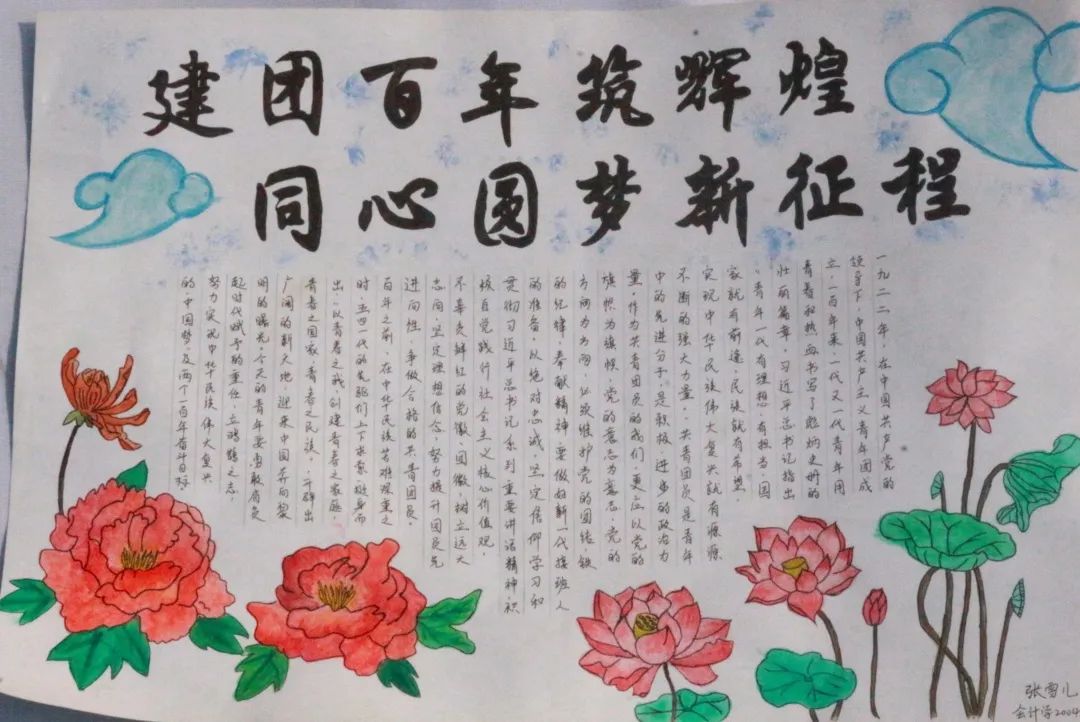 建团百年筑辉煌
同心圆梦新征程
一九二二年,在中国共产党的
领导下,中国共产主义青年团成
立,一百年来一代又一代青年用
青春和热血书写了彪炳史册的
壮丽篇章,习近平总书记指出
“青年一代有理想、有担当,国
家就有前途,民族就有希望,
实现中华民族伟大复兴就有源源
不断的强大力量”共青团员是青年
中的先进分子,是积极、进步的政治力
量,作为共青团员的我们,更应以党的
旗帜为旗帜,党的意志为意志,党的
方向为方向,必须维护党的团结、铁
的纪律,奉献精神,要做好新一代接班人
的准备,以绝对忠诚、坚定信仰学习和
贯彻习近平总书记系列重要讲话精神,积
极自觉践行社会主义核心价值观,
不辜负鲜红的党徽、团徽,树立远大
志向,坚定理想信念,努力提升团员先
进向性,争做合格的共青团员,
百年之前,在中华民族苦难深重之
时,五四一代的先驱们上下求索,挺身而
出,以青春之我创建青春之家庭,
青春之国家,青春之民族,开辟出
广阔的新天地,迎来中国奔向黎
明的曙光,今天的青年要勇敢肩负
起时代赋予的重任,立鸿鹄之志,
努力实现中华民族伟大复兴
的中国梦及两个一百年奋斗目标
张雪儿
会计学2004